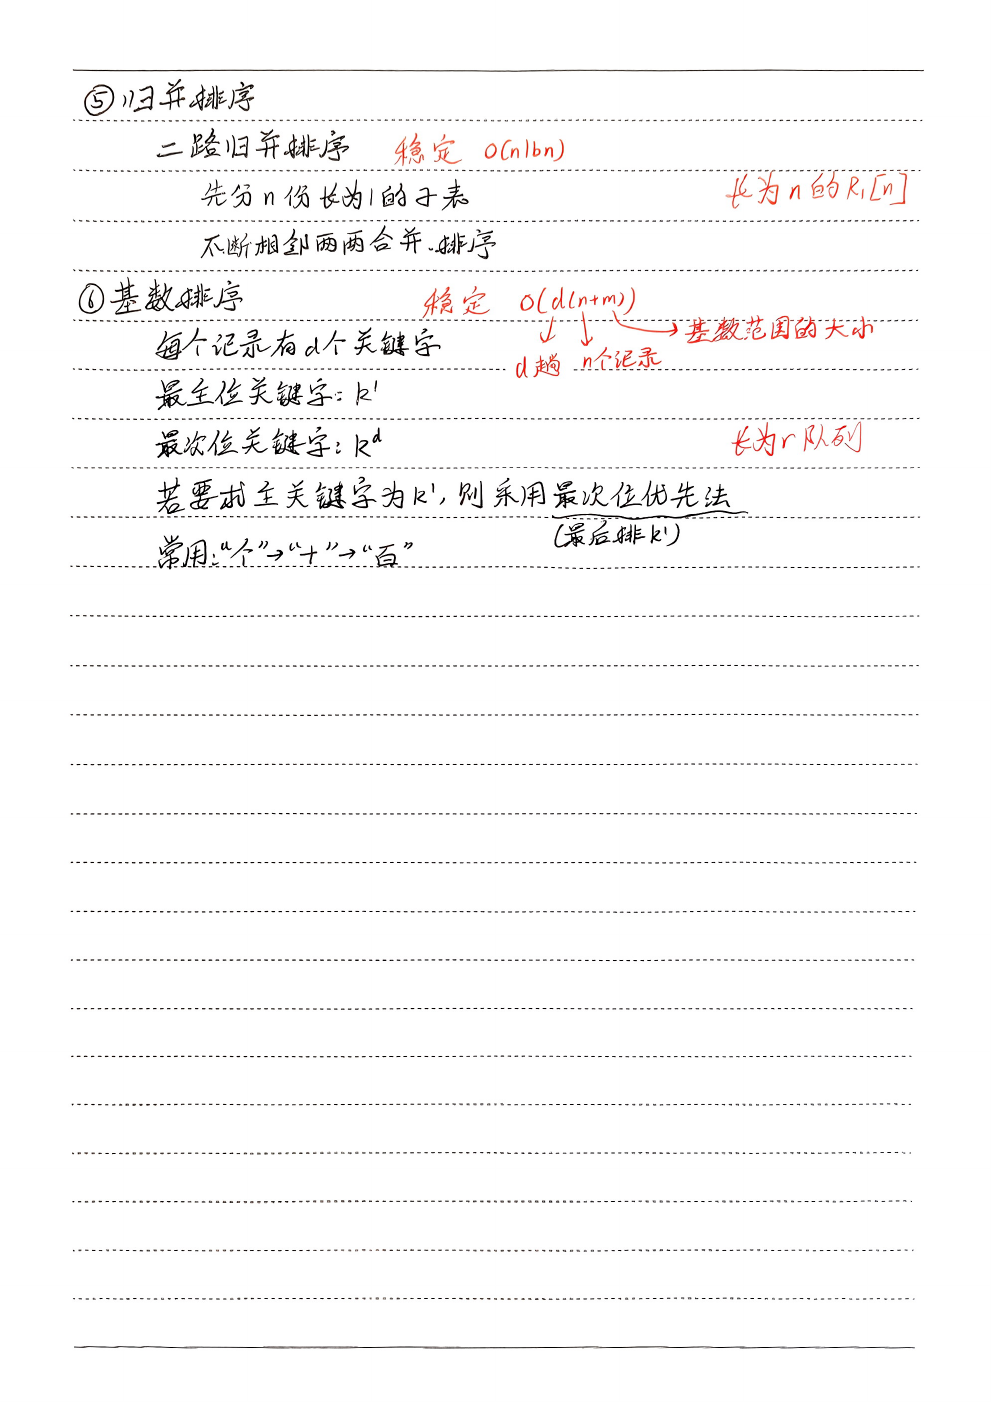 ⑤归并排序
二路归并排序 稳定 O(nlbn)
先分n份长为1的子表 长为n的R₁[n]
不断相邻两两合并.排序
⑥基数排序 稳定 O(d(n+m))
每个记录有d个关键字 d趟 n个记录 基数范围的大小
最主位关键字:k¹
最次位关键字:kᵈ 长为r队列
若要求主关键字为k¹,则采用最次位优先法
(最后排k¹)
常用:“个”→“十”→“百”